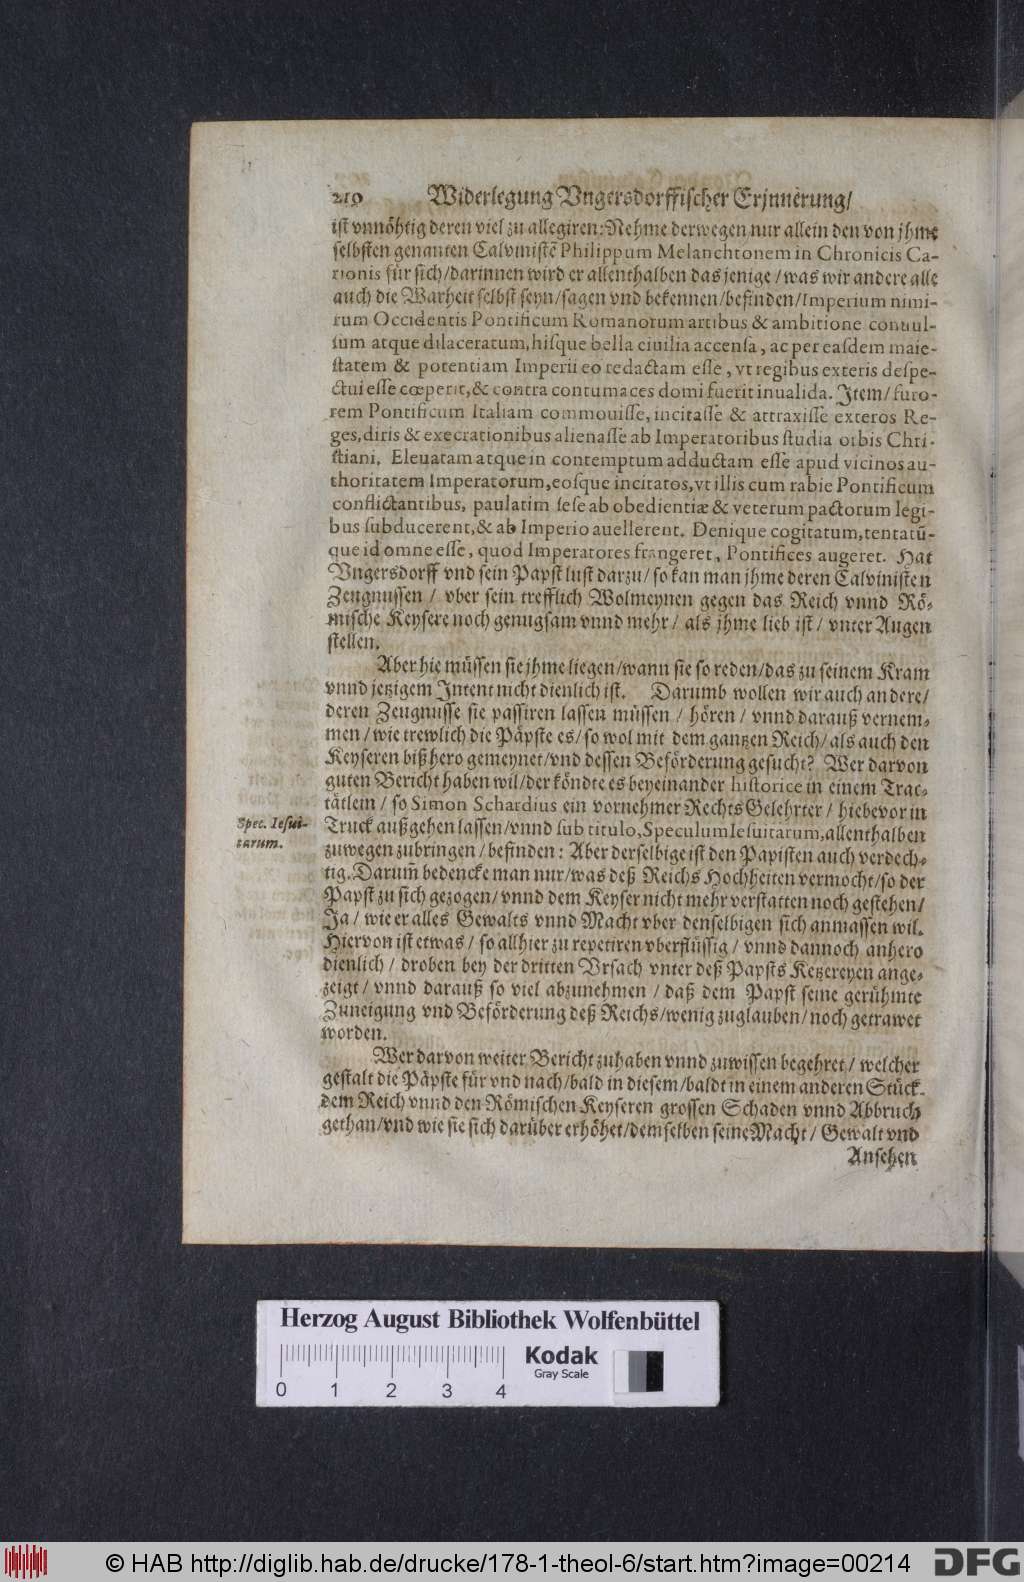 210 Widerlegung Vngersdorffischer Erjnnerung/
ist vnnöhtig deren viel zu allegiren: Nehme derwegen nur allein den von jhme
selbsten genanten Calvinistē Philippum Melanchtonem in Chronicis Ca-
rionis für sich/ darinnen wird er allenthalben das jenige/ was wir andere alle
auch die Warheit selbst seyn/ sagen vnd bekennen/ befinden/ Imperium nimi-
rum Occidentis Pontificum Romanorum artibus & ambitione conuul-
sum atque dilaceratum, hisque bella ciuilia accensa, ac per easdem maie-
statem & potentiam Imperii eo redactam esse, vt regibus exteris despe-
ctui esse cœperit, & contra contumaces domi fuerit inualida. Jtem/ furo-
rem Pontificum Italiam commouisse, incitasse & attraxisse exteros Re-
ges, diris & execrationibus alienasse ab Imperatoribus studia orbis Chri-
stiani. Eleuatam atque in contemptum adductam esse apud vicinos au-
thoritatem Imperatorum, eosque incitatos, vt illis cum rabie Pontificum
conflictantibus, paulatim sese ab obedientiæ & veterum pactorum legi-
bus subducerent, & ab Imperio auellerent. Denique cogitatum, tentatū-
que id omne esse, quod Imperatores frangeret, Pontifices augeret. Hat
Vngersdorff vnd sein Papst lust darzu/ so kan man jhme deren Calvinisten
Zeugnussen/ vber sein trefflich Wolmeynen gegen das Reich vnnd Rö-
mische Keysere noch genugsam vnnd mehr/ als jhme lieb ist/ vnter Augen
stellen.
Aber hie müssen sie jhme liegen/ wann sie so reden/ das zu seinem Kram
vnnd jetzigem Intent nicht dienlich ist. Darumb wollen wir auch andere/
deren Zeugnusse sie passiren lassen müssen/ hören/ vnnd darauß vernem-
men/ wie trewlich die Päpste es/ so wol mit dem gantzen Reich/ als auch den
Keyseren bißhero gemeynet/ vnd dessen Beförderung gesucht? Wer darvon
guten Bericht haben wil/ der köndte es beyeinander historice in einem Trac-
tätlein/ so Simon Schardius ein vornehmer Rechts Gelehrter/ hiebevor in
Spec. Iesui-
tarum.
Truck außgehen lassen/ vnnd sub titulo, Speculum Iesuitarum, allenthalben
zuwegen zubringen/ befinden: Aber derselbige ist den Papisten auch verdech-
tig. Darum̄ bedencke man nur/ was deß Reichs Hochheiten vermocht/ so der
Papst zu sich gezogen/ vnnd dem Keyser nicht mehr verstatten noch gestehen/
Ja/ wie er alles Gewalts vnnd Macht vber denselbigen sich anmassen wil.
Hiervon ist etwas/ so allhier zu repetiren vberflüssig/ vnnd dannoch anhero
dienlich/ droben bey der dritten Vrsach vnter deß Papsts Ketzereyen ange-
zeigt/ vnnd darauß so viel abzunehmen/ daß dem Papst seine gerühmte
Zuneigung vnd Beförderung deß Reichs/ wenig zuglauben/ noch getrawet
worden.
Wer darvon weiter Bericht zuhaben vnnd zuwissen begehret/ welcher
gestalt die Päpste für vnd nach/ bald in diesem/ baldt in einem anderen Stück
dem Reich vnnd den Römischen Keyseren grossen Schaden vnnd Abbruch
gethan/ vnd wie sie sich darüber erhöhet/ demselben seine Macht/ Gewalt vnd
Ansehen
Herzog August Bibliothek Wolfenbüttel
Kodak
Gray Scale
0 1 2 3 4
© HAB http://diglib.hab.de/drucke/178-1-theol-6/start.htm?image=00214
DFG